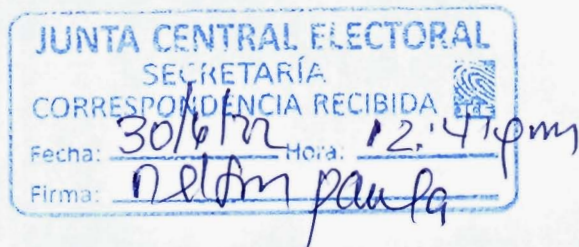 JUNTA CENTRAL ELECTORAL
SECRETARÍA
CORRESPONDENCIA RECIBIDA
Fecha: 30/6/22 Hora: 12:47pm
Firma: nelson paula